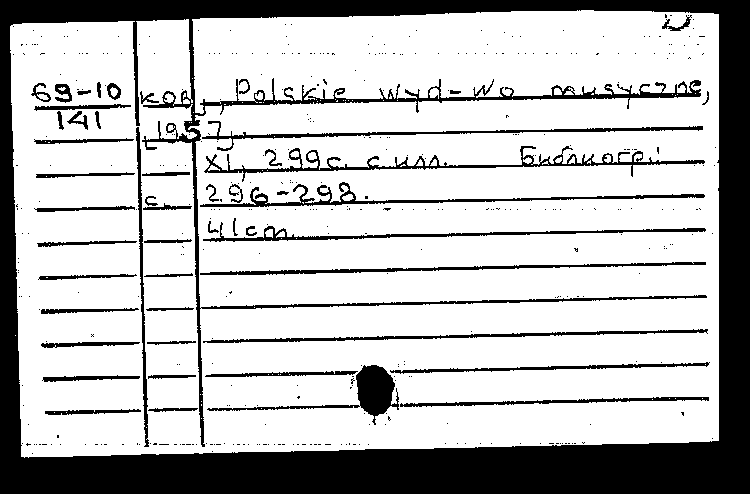 69-10 ков], Polskie wyd-wo musyczne,
141 [1957].
XI, 299 с. с илл. Библиогр.:
с. 296-298.
41 cm.